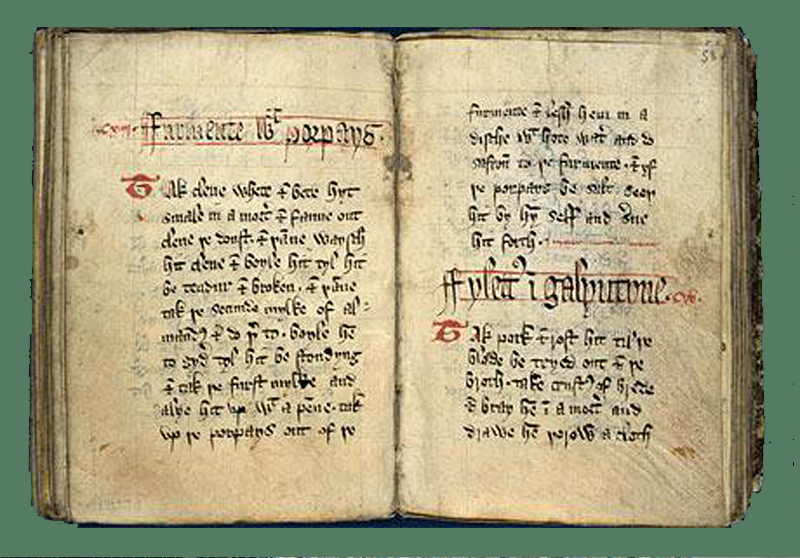 ffurmente wt porpays.
Tak clene whete & bete hyt
smale in a morter & fanne out
clene þe doust. & þanne waysch
hit clene & boyle hit tyl hit
be tendur & broken. & þanne
tak þe secunde mylke of al-
maundes & do þer to. boyle hem
to gyder tyl hit be stondyng
& tak þe furst mylke and
alye hit vp wt a penne. tak
vp þe porpays out of þe
furmente & lesh hem in a
dische wt hote water and do
safron to þe furmente. & yf
þe porpays be salt. seeþ
hit by hym self and serue
hit forth.
ffylettes in galyntyne.
Tak pork & rost hit til þe
blode be tryed out & þe
broth. take crustes of brede
& bray hem in a morter and
drawe hem þorow a cloth